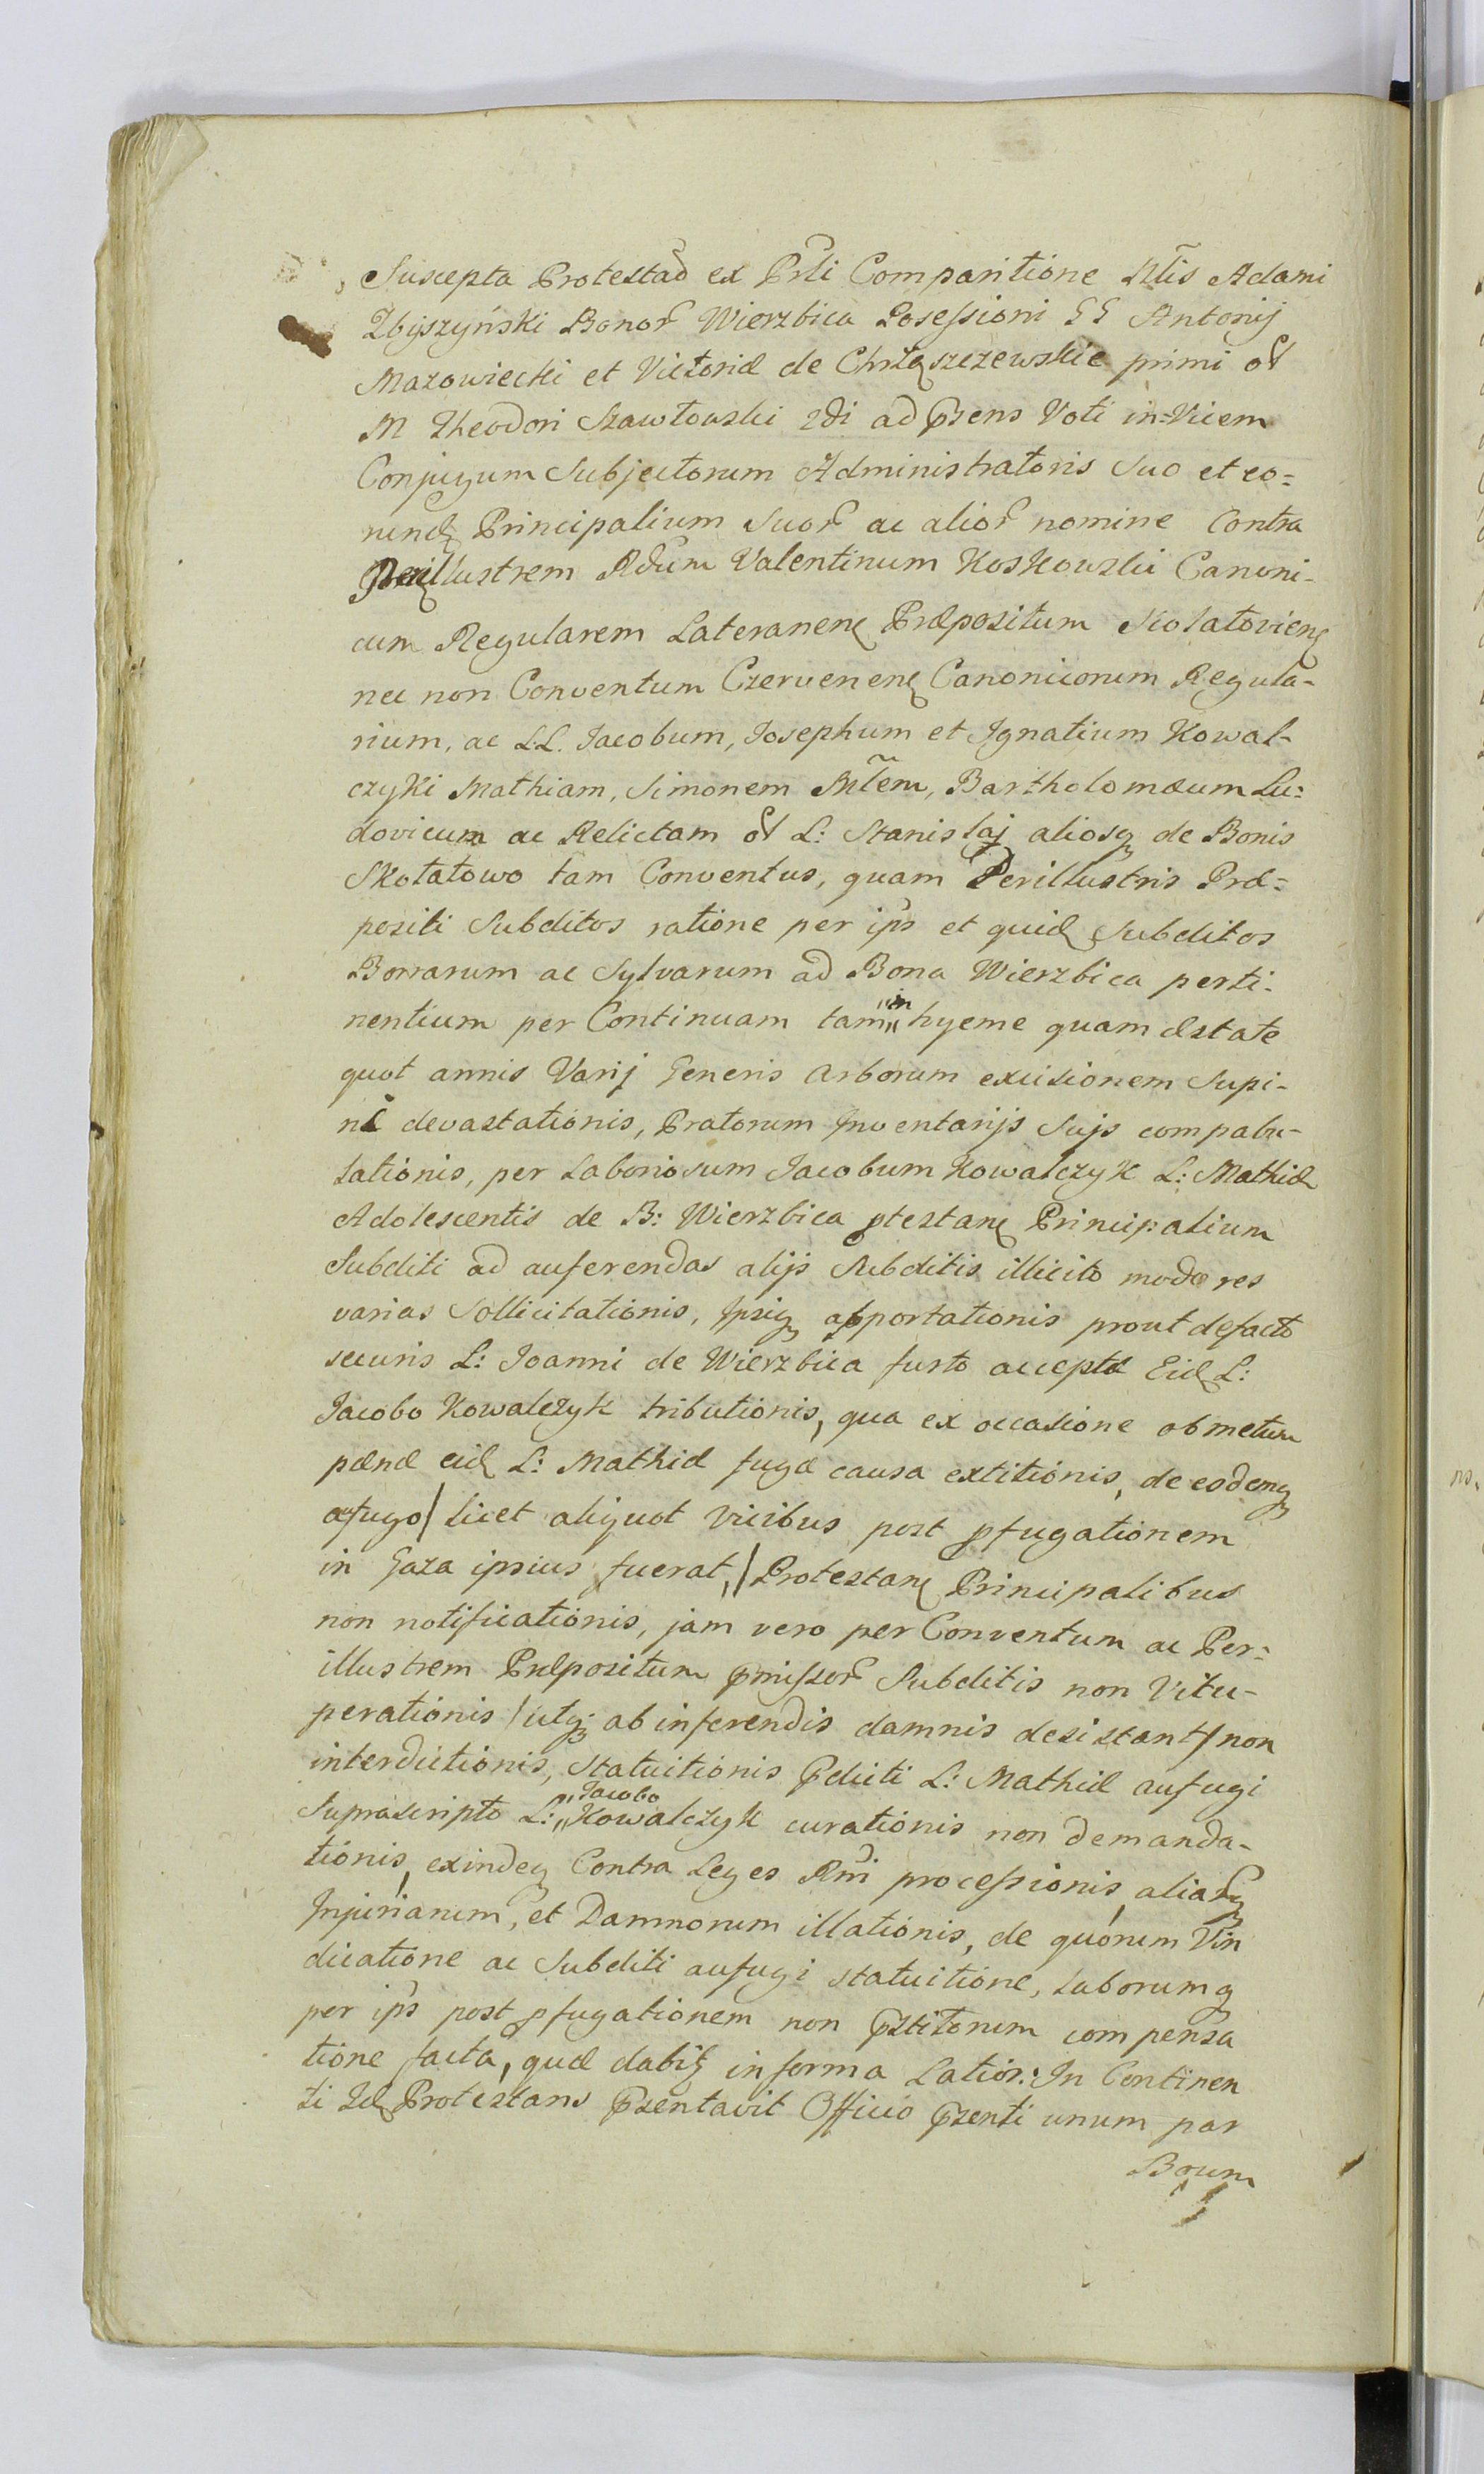 Suscepta Protestaõ ex Prti Comparitione Ntis Adami
Zbyszyński Bonor Wierzbica Posessioni GG Antonij
Mazowiecki et Victoriæ de Chrząszczewskie primi ol
M Theodori Szawłowski 2di ad pzens Voti in=Vicem
Conjugum Subjectorum Administratoris Suo et eo=
rund Principalium Suor ac alior nomine Contra
Perillustrem Rdum Valentinum Koskowski Canoni-
cum Regularem Lateranen Præpositum Skolatovien
nec non Conventum Czervenen Canonicorum Regula-
rium, ac L.L. Jacobum, Josephum et Ignatium Kowal-
czyki Mathiam, Simonem Mlem, Bartholomæum Lu=
dovicum ac Relictam ol L: Stanislaj aliosq de Bonis
Skołatowo tam Conventus, quam Perillustris Præ=
positi Subditos ratione per ips et quid Subditos
Borrarum ac Sylvarum ad Bona Wierzbica perti-
nentium per Continuam tam in hyeme quam æstate
quot annis Varij Generis Arborum excisionem Supi-
næ devastationis, Pratorum Inventarijs Sujs compabu-
lationis, per Laboriosum Jacobum Kowalczyk L: Mathiæ
Adolescentis de B: Wierzbica ptestan Principalium
Subditi ad auferendas alijs Subditis illicito modo res
varias Sollicitationis, Ipsiq apportationis prout defacto
securis L: Joanni de Wierzbica furto acceptæ Eid L:
Jacobo Kowalczyk tributionis, qua ex occasione ob metum
pænæ eid L: Mathiæ fugæ causa extitionis, de eodemq
afugo / licet aliquot vicibus post pfugationem
in Gaza ipsius fuerat, / Protestan Principalibus
non notificationis, jam vero per Conventum ac Per=
illustrem Præpositum pmissor Subditis non Vitu-
perationis / utq ab inferendis damnis desistant / non
interdictionis, Statuitionis pdicti L: Mathiæ aufugi
Suprascripto L: Jacobo Kowalczyk curationis non demanda-
tionis, exindeq Contra Leges Rni processionis, aliarq
Injuriarum, et Damnorum illationis, de quorum Vin
dicatione ac Subditi aufugi statuitione, Laborumq
per ips post pfugationem non pstitorum compensa
tione facta, quæ dabit in forma Latior: In Continen
ti Id Protestans pzentavit Officio pzenti unum par
Boum